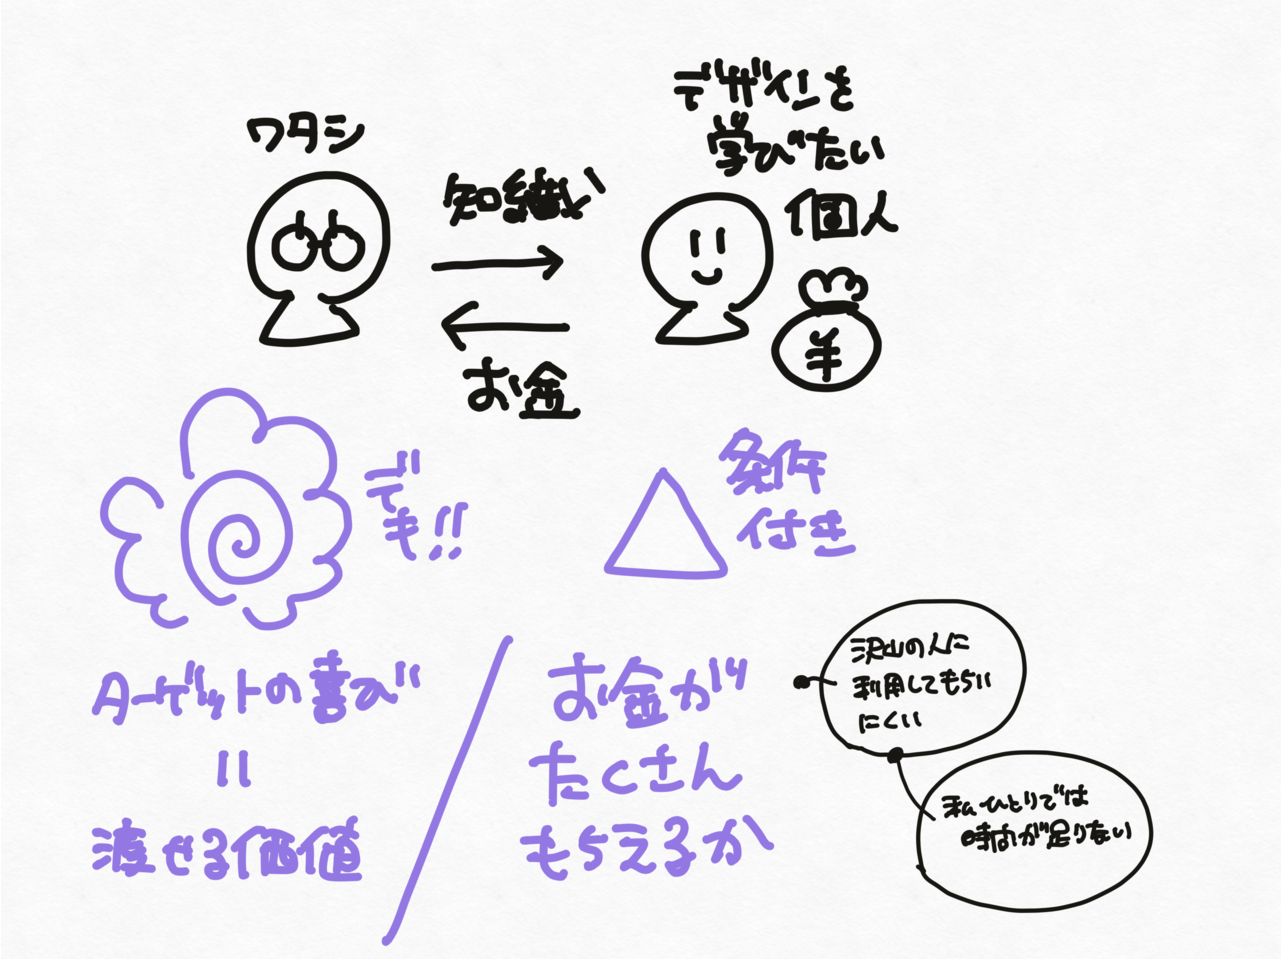 ワタシ
デザインを
学びたい
個人
知織い
お金
¥
でも!!
条件
付き
ターゲットの喜び
=
渡せる価値
お金が
たくさん
もらえるか
沢山の人に
利用してもらい
にくい
私ひとりでは
時間が足りない